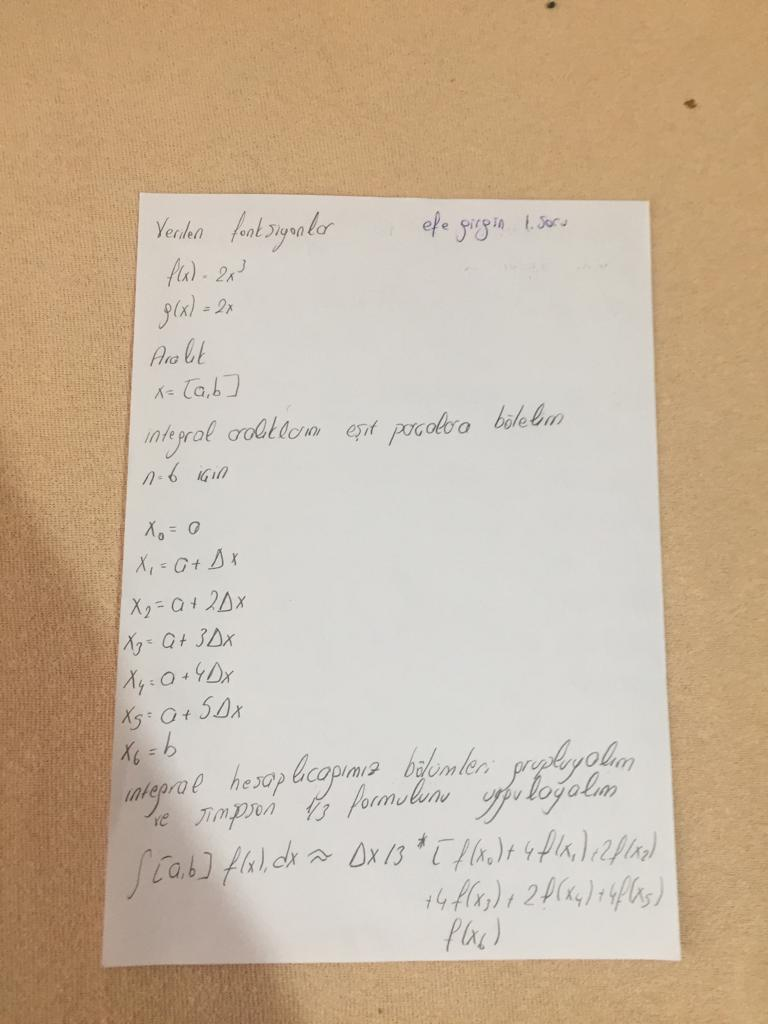 Verilen fonksiyonlar
efe girgin 1. soru
f(x) = 2x³
g(x) = 2x
Aralık
x = [a,b]
integral aralıklarını eşit parçalara bölelim
n=6 için
x₀ = a
x₁ = a + Δx
x₂ = a + 2Δx
x₃ = a + 3Δx
x₄ = a + 4Δx
x₅ = a + 5Δx
x₆ = b
integral hesaplıcağımız bölümleri grupluyalım
ve simpson 1/3 formulunu uygulayalım
∫[a,b] f(x).dx ≈ Δx/3 * [f(x₀) + 4f(x₁) + 2f(x₂)
+4f(x₃) + 2f(x₄) + 4f(x₅)
f(x₆)